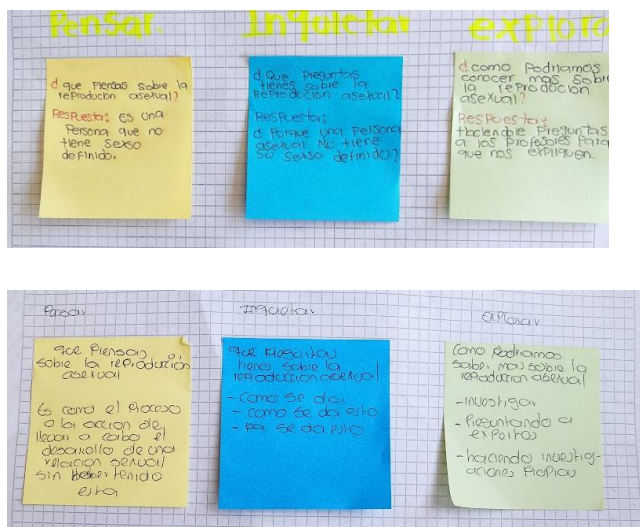 Pensar. Inquietar explora
¿que Piensas sobre la
reproducion asexual?
Respuesta: es una
Persona que no
tiene sexso
definido.
¿Que Preguntas
tienes sobre la
Reproducion asexual?
Respuesta:
¿Porque una Persona
asexual No tiene
so sexso definido?
¿como Podriamos
conocer mas sobre
la reproducion
asexual?
Respuesta:
Haciendole Preguntas
a los Profesores Para
que nos expliquen.
Pensar Inquietar explorar
que Piensas
sobre la reproducción
asexual
Es como el Proceso
o la accion de
llevar a cabo el
desarollo de una
relacion sexual
sin haber tenido
esta
que Preguntas
tienes sobre la
reproduccion asexual
-como se da
-como se da esto
- se da esto
Como Podriamos
saber mas sobre la
reproduccion asexual
-investigar
-Preguntando a
expertos
-haciendo investig-
aciones Propias